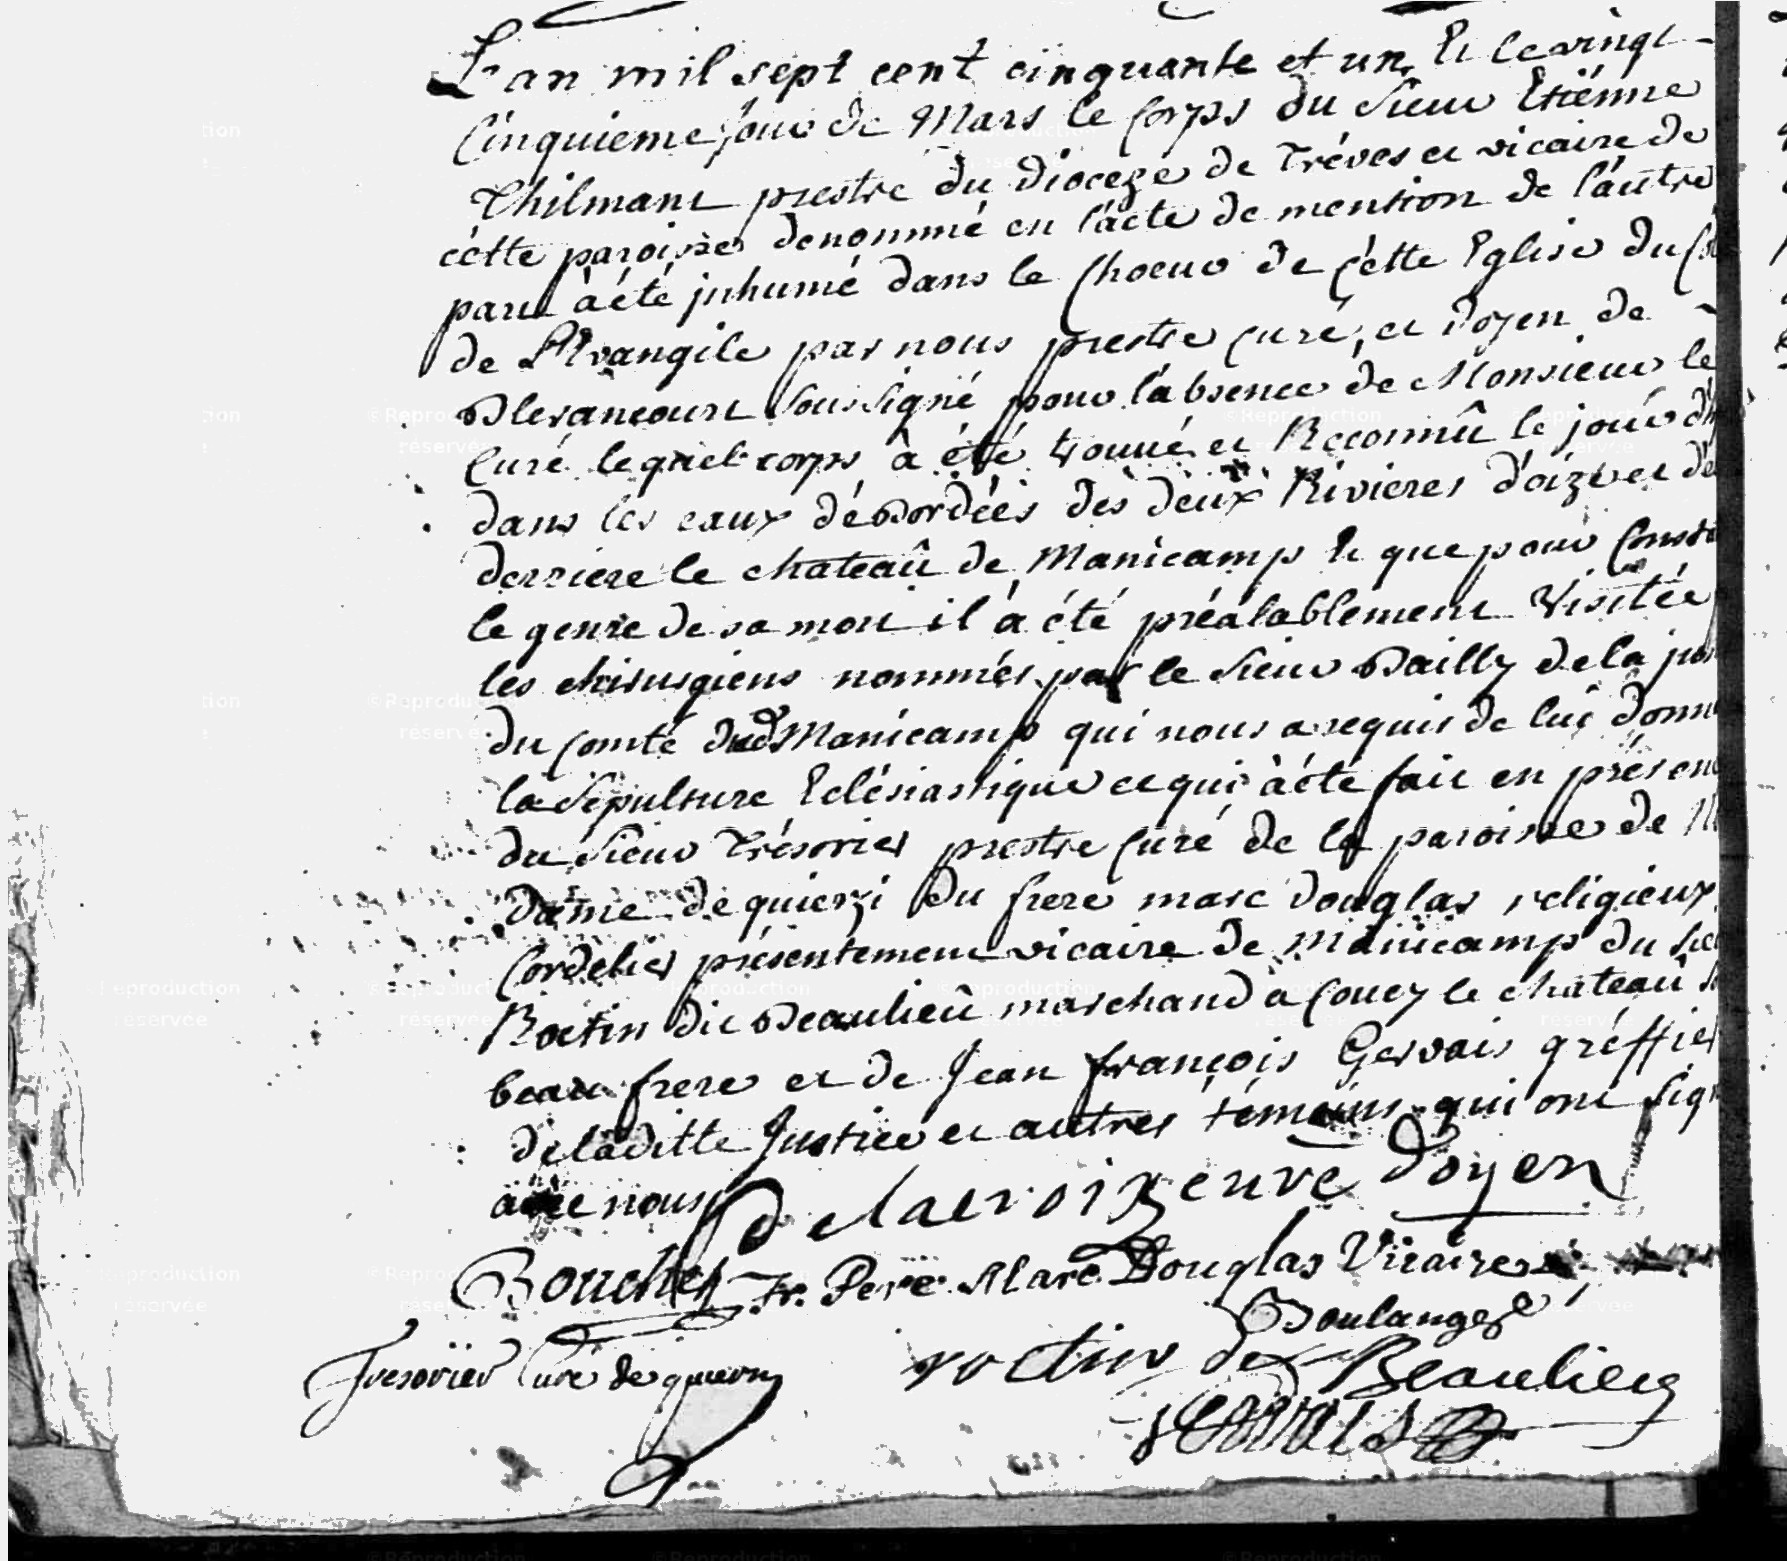 L'an mil sept cent cinquante et un Et le vingt-
Cinquieme jour de Mars le Corps du Sieur Etiénne
Thilmant prestre du Dioceze de Tréves et vicaire de
cétte paroisse denommé en l'acte de mention de l'autre
part à été inhumé dans le Choeur de Cétte Eglise du
de L'Evangile par nous prestre Curé, et Doyen de
Blerancourt Soussigné pour l'absence de Monsieur le
Curé lequel corps à été trouvé et Reconnû le jour
dans les eaux débordées des deux Rivieres d'oize et
derriere le chateaû de Manicamp Et que pour
le genre de sa mort il à été préalablement Visitée
les chirurgiens nommés par le Sieur Bailly de la
du Comté dud Manicamp qui nous a requis de luÿ donn
la Sépulture Eclésiastique ce qui à été fait en présen
du Sieur Trésorier prestre Curé de la paroisse de
Dame de quierzi Du frere marc Douglas religieux
Cordelier présentement vicaire de Manicamp du
Roctin dit Beaulieû marchand à Coucy le chateaû
beau frere et de Jean françois Gervais gréffier
de laditte Justice et autres témoins qui ont Sig
avec nous Delacroix Zeuvre Doyen
Bouchez fr. Pere Marc Douglas Vicaire
Boulanger
Tresorier Curé de quierzy roctin de Beaulieu
Gervais